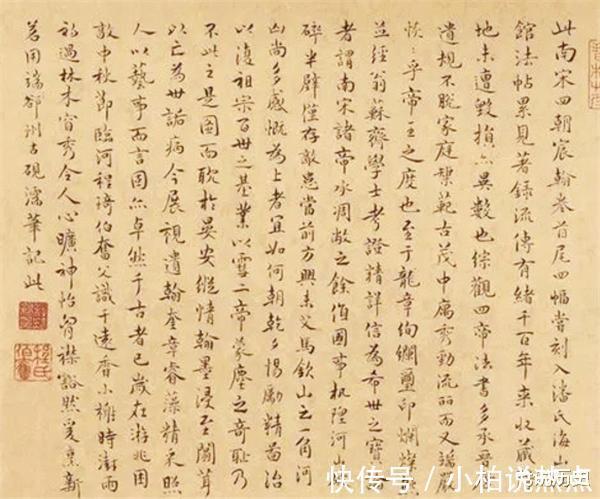 此南宋四朝宸翰卷首尾四幅嘗刻入潘氏海山
館法帖累見著錄流傳有緒千百年來收藏
地未遭毀損亦異數也綜觀四帝法書多承
遺規不脫家庭榘範古茂中厲秀勁流麗而又謹嚴
恢恢乎帝王之度也至于龍章絢爛璽印斕
並經翁蘇齋學士考證精詳信為希世之寶
者謂南宋諸帝承凋敝之餘值國事杌隉河山
碎半壁僅存敵患當前方興未艾馬欽山之一角河
山尚多感慨為上者宜如何朝乾夕惕勵精圖治
以復祖宗百世之基業以雪二帝蒙塵之奇恥乃
不此之是圖而耽於晏安縱情翰墨浸至闒茸
以亡為世詬病今展視遺翰奎章睿藻精采照
人以藝事而言固亦卓然于古者已歲在游兆困
敦中秋節臨河程琦伯奮父識于遠香小榭時澍雨
初過林木秀令人心曠神怡胸襟豁然爰熏新
茗用端州古硯濡筆記此
快传号/小柏说